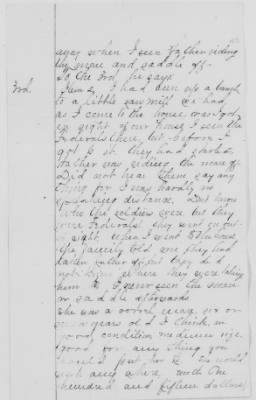 away when I seen Father riding
the mare and saddle off
To the 3rd he says
3rd.
James, I had been up a branch
to a little saw mill we had,
as I come to the house, was got
in sight of our house I seen the
Federals there but before I
got to it they had started
Father was riding the mare off
Did not hear them say any
thing for I was hardly in
speaking distance, Dont know
who the soldiers were but they
were Federals they went out
sight when I went to the house
the family told me they had
taken father off but they did
not know where they were taking
him to I never seen the mare
or saddle afterwards
She was a sorrel mare, six or
seven years old I think, in
good condition medium size,
good for any thing you
would put her to she would
work any where, worth One
hundred and fifteen dollars